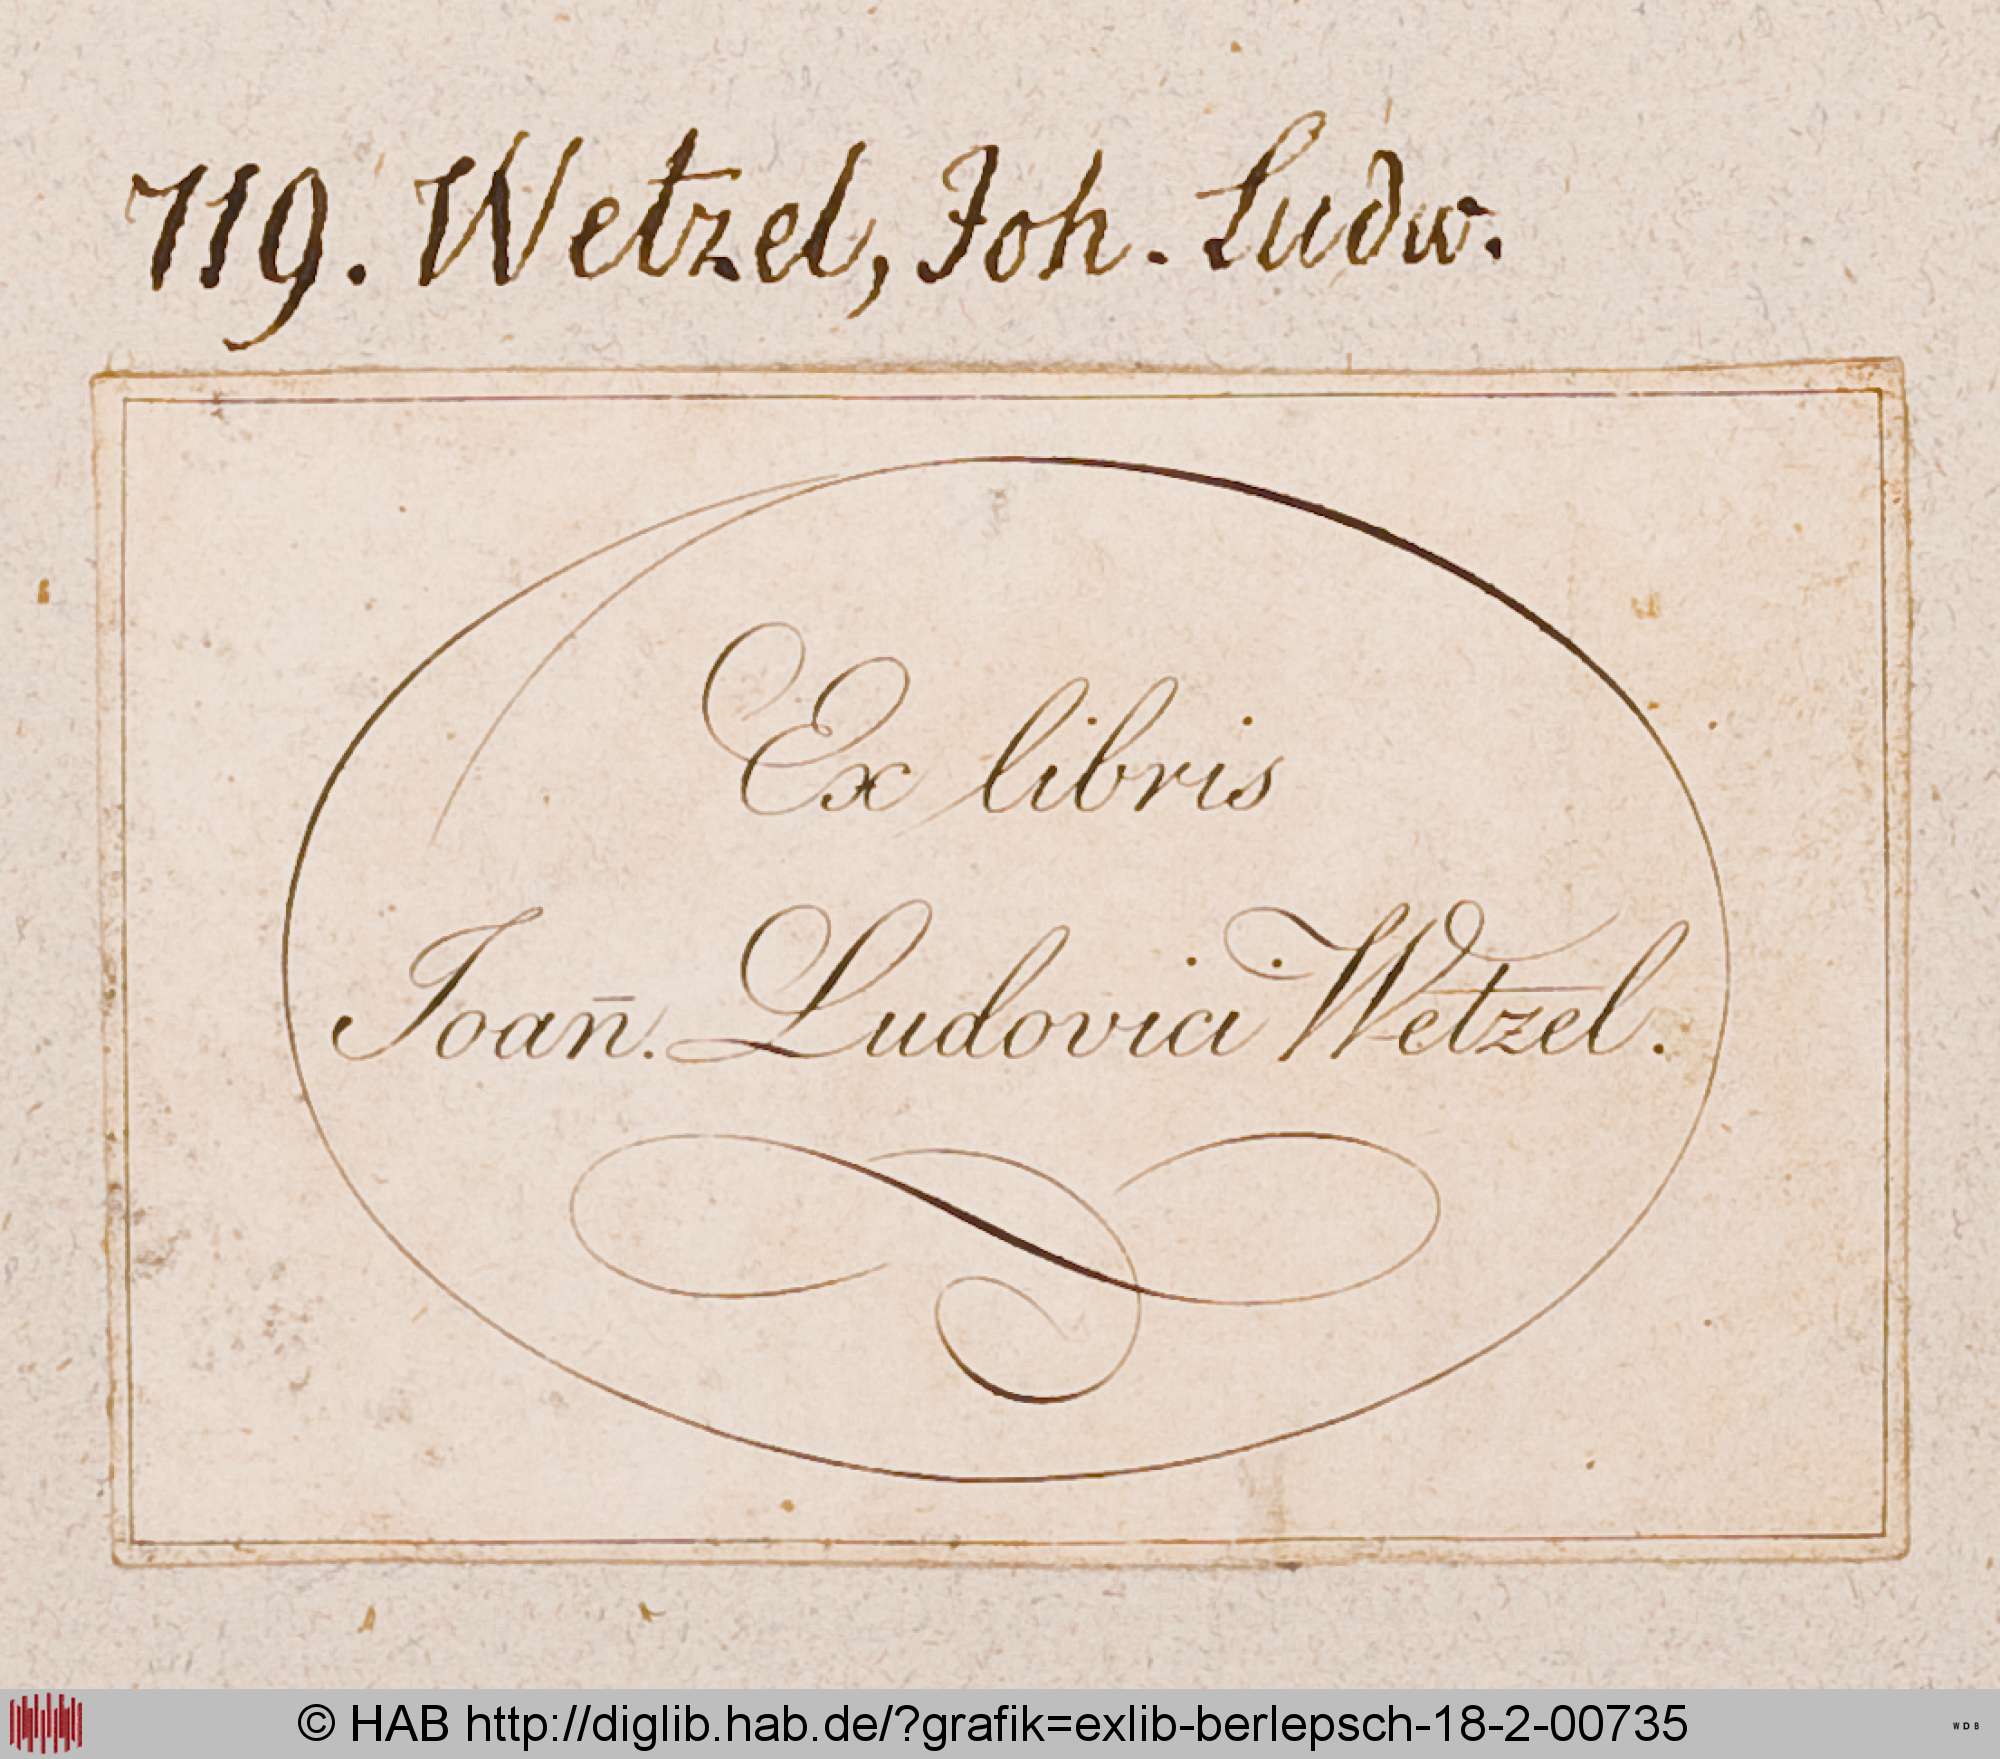 719. Wetzel, Joh. Ludw.
Ex libris
Joan̄. Ludovici Wetzel.
© HAB http://diglib.hab.de/?grafik=exlib-berlepsch-18-2-00735
WDB